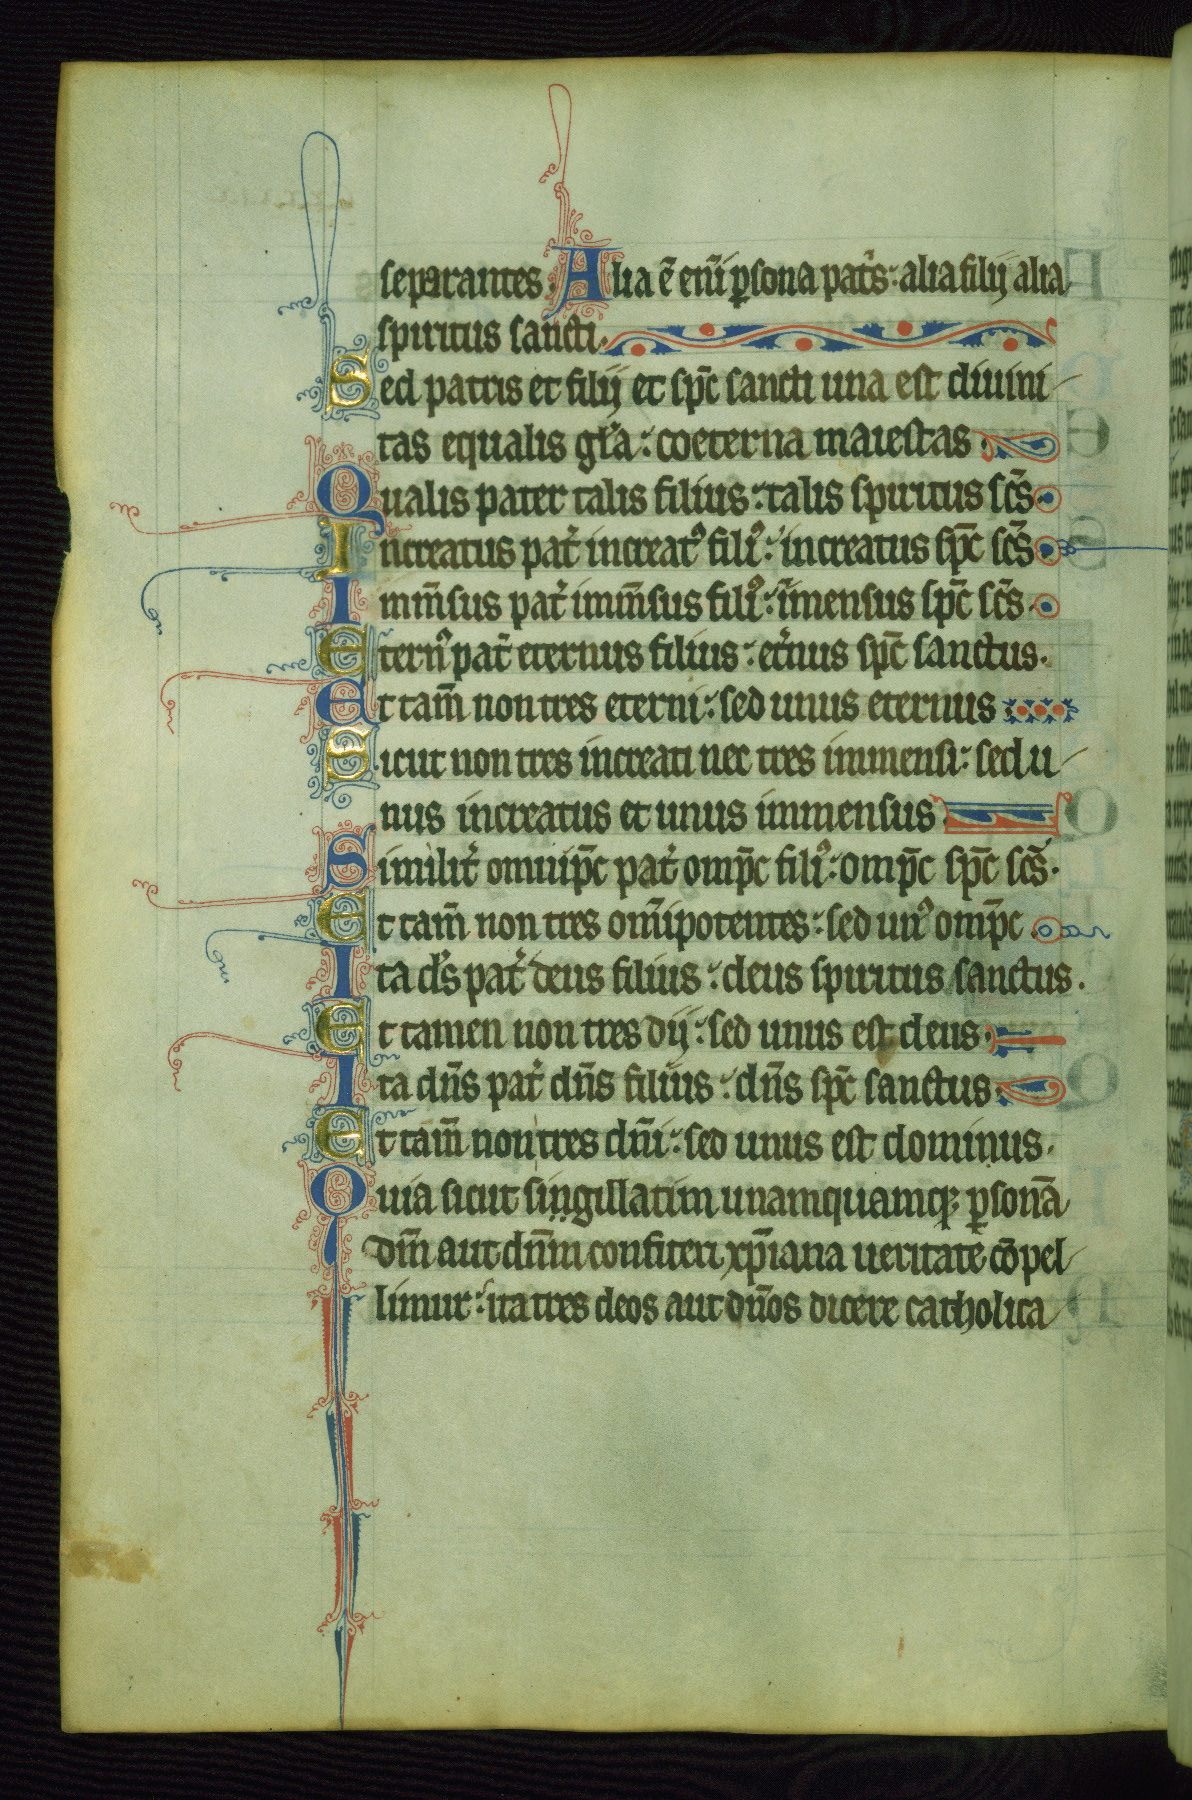 separantes. Alia ē eni̅ p̱sona pat̉s: alia filij alia
spiritus sancti.
Sed patris et filij et sp̅c sancti una est diuini
tas equalis gl̉a: coeterna maiestas
Qualis pater talis filius: talis spiritus sc̄s
Increatus pat̉ increatꝰ filiꝰ: increatus sp̅c sc̄s
Imm̅sus pat̉ imm̅sus filiꝰ: i̅mensus sp̅c sc̄s
Eternꝰ pat̉ eternus filius: et̉nus sp̅c sanctus.
Et tam̅ non tres eterni: sed unus eternus
Sicut non tres increati nec tres immensi: sed u
nus increatus et unus immensus
Similit̉ omnip̅c pat̉ omp̅c filiꝰ: omp̅c sp̅c sc̄s.
Et tam̅ non tres om̅ipotentes: sed unꝰ omp̅c
Ita d̉s pat̉ deus filius: deus spiritus sanctus.
Et tamen non tres dij: sed unus est deus.
Ita dn̅s pat̉ dn̅s filius: dn̅s sp̅c sanctus
Et tam̅ non tres dn̅i: sed unus est dominus.
Quia sicut singillatim unamquamqꝫ p̱sonā
dm̅ aut dn̅m confiteri xp̅iana ueritate cōpel
limur: ita tres deos aut dn̅os dicere catholica